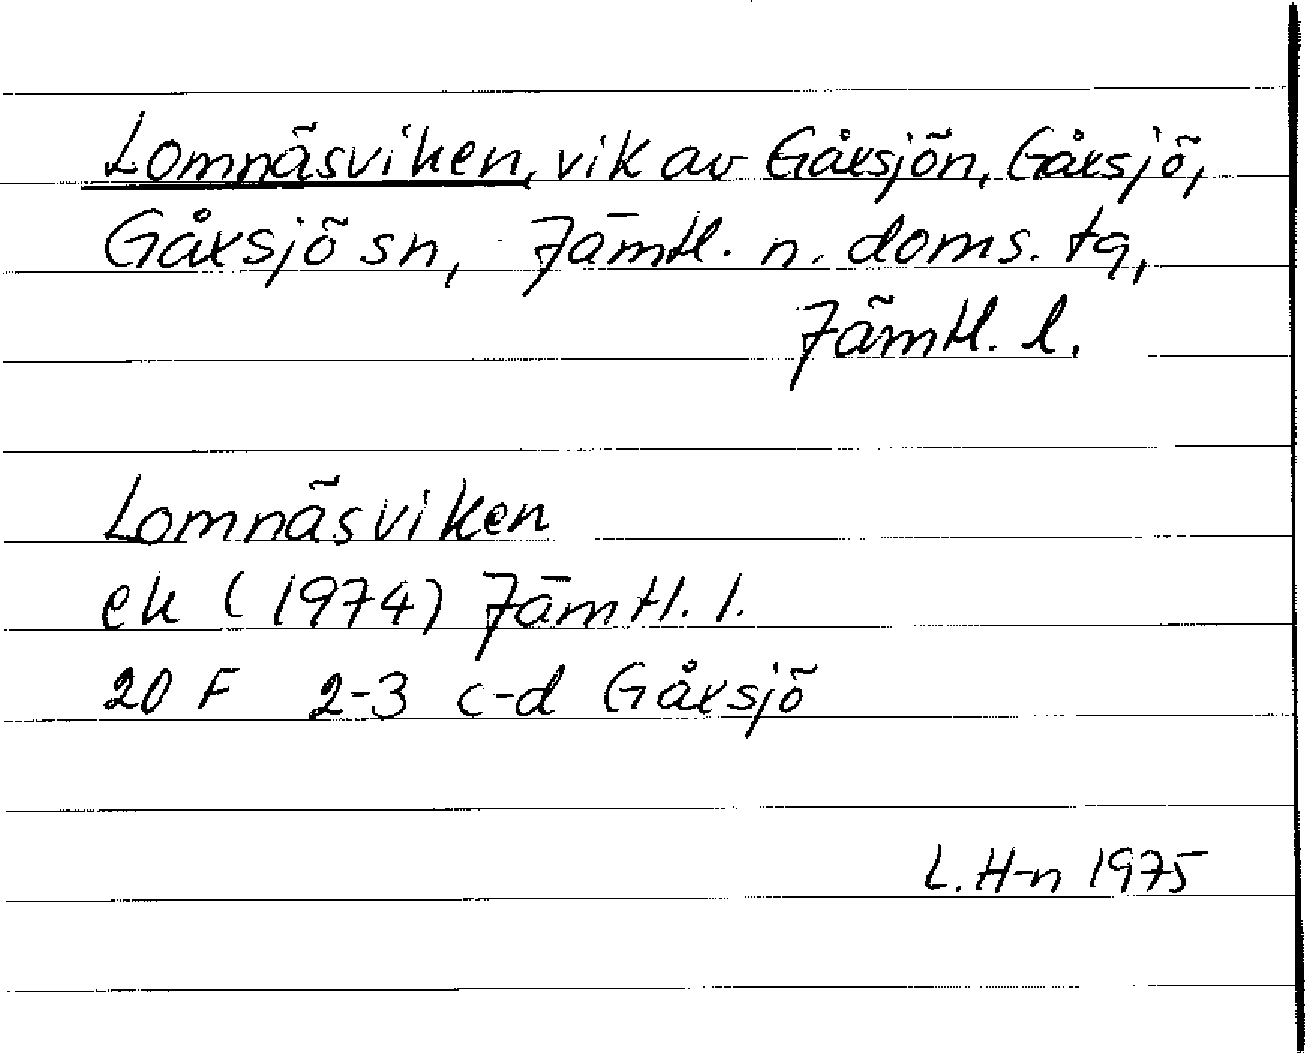 Lomnäsviken, vik av Gåxsjön, Gåxsjö,
Gåxsjö sn, Jämtl. n. doms. tg,
Jämtl. l.
Lomnäsviken
ek (1974) Jämtl. l.
20 F 2-3 c-d Gåxsjö
L. H-n 1975